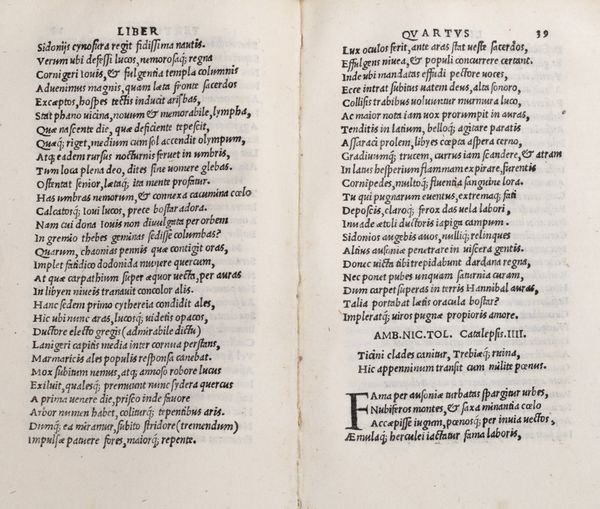 LIBER
Sidonijs cynosura regit fidissima nautis.
Verum ubi defessi lucos, nemorosaq; regna
Cornigeri Iouis, & fulgentia templa columnis
Aduenimus magnis, quam læta fronte sacerdos
Exceptos, hospes tectis inducit arisbas,
Stat phano uicina, nouum & memorabile, lympha,
Quæ nascente die, quæ deficiente tepescit,
Quæq; riget, medium cum sol accendit olympum,
Atq; eadem rursus nocturnis feruet in umbris,
Tum loca plena deo, dites sine uomere glebas.
Ostentat senior, lætaq; ita mente profatur.
Has umbras nemorum, & connexa cacumina cœlo
Calcatosq; Ioui lucos, prece bostar adora.
Nam cui dona Iouis non diuulgata per orbem
In gremio thebes geminas sedisse columbas?
Quarum, chaonias pennis quæ contigit oras,
Implet fatidico dodonida murmure quercum,
At quæ carpathium super æquor uecta, per auras
In libyen niueis tranauit concolor alis.
Hanc sedem primo cythereia condidit ales,
Hic ubi nunc aras, lucosq; uidetis opacos,
Ductore electo gregis (admirabile dictu)
Lanigeri capitis media inter cornua perstans,
Marmaricis ales populis responsa canebat.
Mox subitum nemus, atq; annoso robore lucus
Exiluit, qualesq; premunt nunc sydera quercus
A prima uenere die, prisco inde fauore
Arbor numen habet, coliturq; tepentibus aris.
Dumq; ea miramur, subito stridore (tremendum)
Impulsæ patuere fores, maiorq; repente.
QVARTVS 39
Lux oculos ferit, ante aras stat ueste sacerdos,
Effulgens niuea, & populi concurrere certant.
Inde ubi mandatas effudi pectore uoces,
Ecce intrat subitus uatem deus, alta sonoro,
Collisis trabibus uoluuntur murmura luco,
Ac maior nota iam uox prorumpit in auras,
Tenditis in latium, belloq; agitare paratis
Assaraci prolem, libyes cœpta aspera cerno,
Gradiuumq; trucem, currus iam scandere, & atram
In latus hesperium flammam expirare, furentis
Cornipedes, multoq; fluentia sanguine lora.
Tu qui pugnarum euentus, extremaq; fati
Deposcis, claroq; ferox das uela labori,
Inuade ætoli ductoris iapiga campum.
Sidonios augebis auos, nulliq; relinques
Altius ausoniæ penetrare in uiscera gentis.
Donec uicta tibi trepidabunt dardana regna,
Nec ponet pubes unquam saturnia curam,
Dum carpet superas in terris Hannibal auras,
Talia portabat lætis oracula bostar?
Impleratq; uiros pugnæ propioris amore.
AMB. NIC. TOL. Catalepsis. IIII.
Ticini clades canitur, Trebiæq; ruina,
Hic appenninum transit cum milite pœnus.
FAma per ausoniæ turbatas spargitur urbes,
Nubiferos montes, & saxa minantia cœlo
Accæpisse iugum, pœnosq; per inuia uectos,
Æmulaq; herculei iactatur fama laboris,